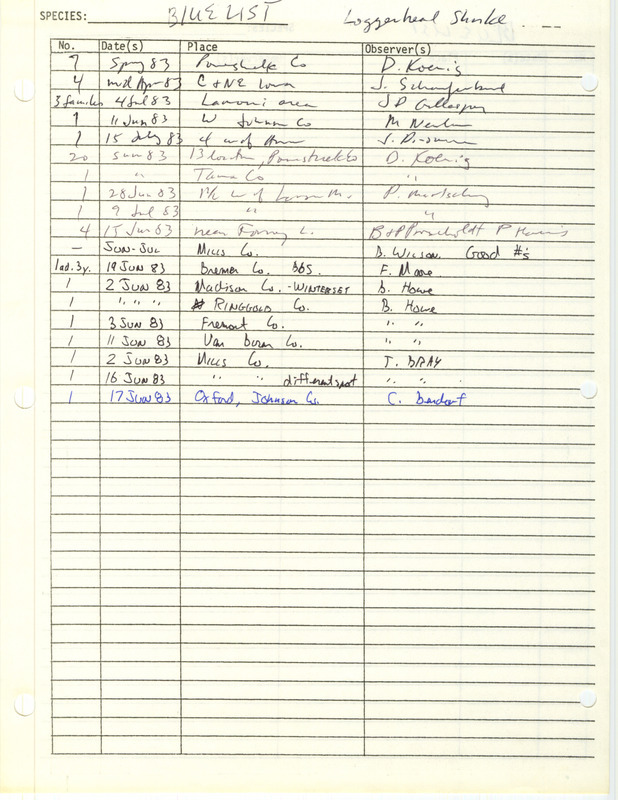 SPECIES: BLUE LIST Loggerhead Shrike
No. Date(s) Place Observer(s)
7 Spring 83 Poweshiek Co D. Koenig
4 mid Apr 83 C & NE Iowa J.
3 families 4 Jul 83 Lamoni area JD Gillaspey
1 11 Jun 83 W Johnson Co M Newlon
1 15 July 83 4 w of J. Dinsmore
20 Sum 83 13 locations, Poweshiek Co D. Koenig
1 " Tama Co "
1 28 Jun 83 W of P. Martsching
1 9 Jul 83 " "
4 15 Jun 83 near L. B & P Proescholdt P
— JUN-JUL Mills Co. B. Wilson Good #'s
1ad. 3y. 19 JUN 83 Bremer Co. BBS. F. Moore
1 2 JUN 83 Madison Co. - WINTERSET B. Howe
1 " " " RINGGOLD Co. B. Howe
1 3 JUN 83 Fremont Co. " "
1 11 JUN 83 Van Buren Co. " "
1 2 JUN 83 Mills Co. T. BRAY
1 16 JUN 83 " " different spot " "
1 17 JUN 83 Oxford, Johnson Co. C. Bendorf